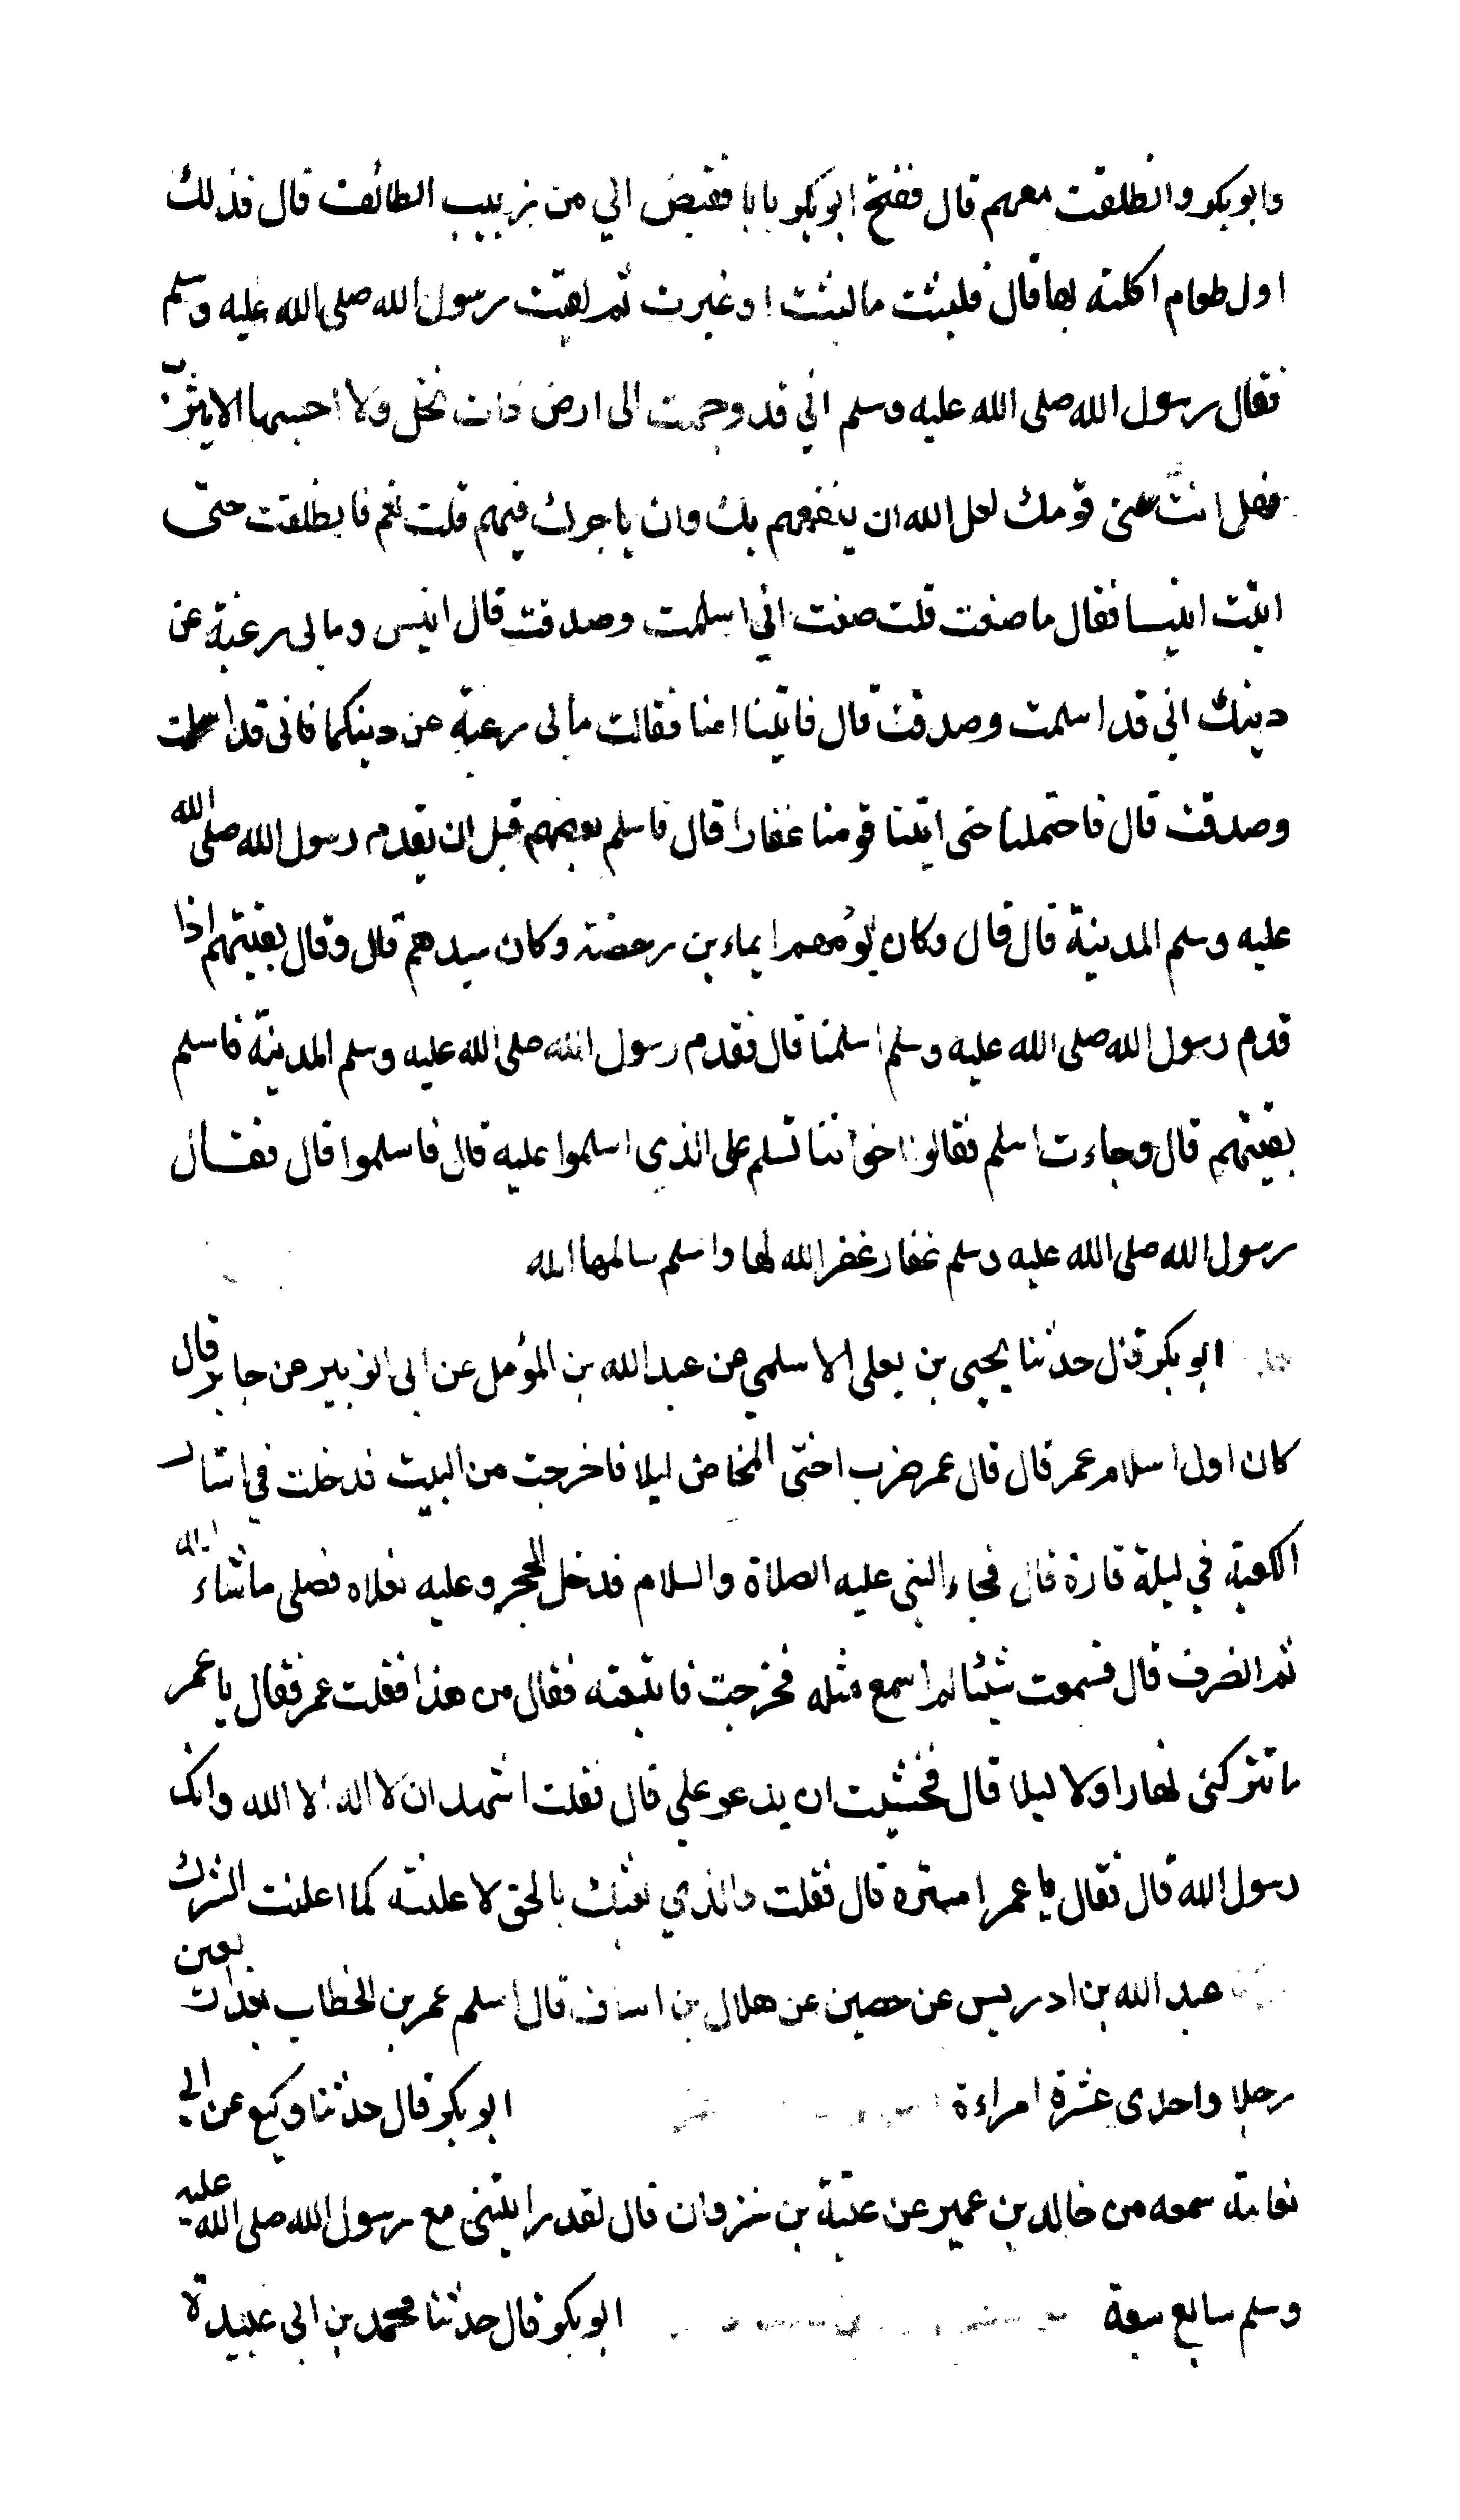 وابوبكر وانطلقت معهم قال ففتح ابوبكر بابا فقبض الي من زبيب الطائف قال فذلك
اول طعام اكلته بها قال فلبثت ما لبثت او غبرت ثم لقيت رسول الله صلى الله عليه وسلم
فقال رسول الله صلى الله عليه وسلم اني قد وجهت الى ارض ذات نخل ولا احسبها الا يثرب
فهل انت عنى قومك لعل الله ان ينفعهم بك وان ياجرك فيهم قلت نعم فانطلقت حتى
اتيت انيسا فقال ما صنعت قلت صنعت اني اسلمت وصدقت قال انيس وما لى رغبة عن
دينك اني قد اسلمت وصدقت قال فاتينا امنا فقالت ما لى رغبة عن دينكما فانى قد اسلمت
وصدقت قال فاحتملنا حتى اتينا قومنا غفارا قال فاسلم بعضهم قبل ان يقدم رسول الله صلى الله
عليه وسلم المدينة قال قال وكان يؤمهم ايماء بن رحضة وكان سيدهم قال وقال بقيتهم اذا
قدم رسول الله صلى الله عليه وسلم اسلمنا قال فقدم رسول الله صلى الله عليه وسلم المدينة فاسلم
بقيتهم قال وجاءت اسلم فقالوا اخواننا نسلم على الذى اسلموا عليه قال فاسلموا قال فقال
رسول الله صلى الله عليه وسلم غفار غفر الله لها واسلم سالمها الله
ابوبكر قال حدثنا يحيى بن يعلى الاسلمي عن عبد الله بن المؤمل عن ابى الزبير عن جابر قال
كان اول اسلام عمر قال قال عمر ضرب اختى المخاض ليلا فاخرجت من البيت فدخلت في استار
الكعبة في ليلة قارة قال فجاء النبى عليه الصلاة والسلام فدخل الحجر وعليه نعلاه فصلى ما شاء الله
ثم انصرف قال فسمعت شيئا لم اسمع مثله فخرجت فاتبعته فقال من هذا فقلت عمر فقال يا عمر
ما تتركنى نهارا ولا ليلا قال فخشيت ان يدعو علي قال فقلت اشهد ان لا اله الا الله وانك
رسول الله قال فقال يا عمر استره قال فقلت والذي بعثك بالحق لاعلنته كما اعلنت الشرك
عبد الله بن ادريس عن حصين عن هلال بن اساف قال اسلم عمر بن الخطاب بعد اربعين
رجلا واحدى عشرة امراءة ابوبكر قال حدثنا وكيع عن ابي
نعامة سمعه من خالد بن عمير عن عتبة بن غزوان قال لقد رايتنى مع رسول الله صلى الله عليه
وسلم سابع سبعة ابوبكر قال حدثنا محمد بن ابى عبيدة